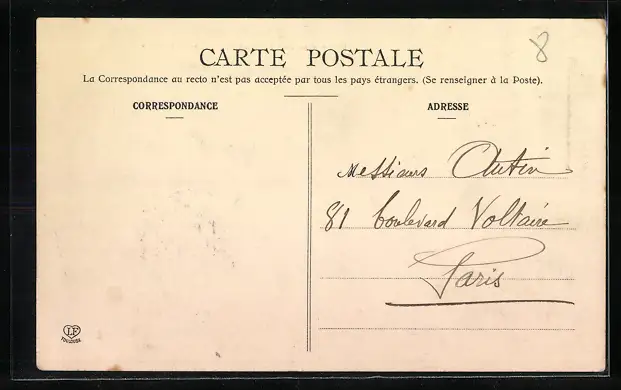 8
CARTE POSTALE
La Correspondance au recto n'est pas acceptée par tous les pays étrangers. (Se renseigner à la Poste).
CORRESPONDANCE
ADRESSE
Messieurs Autin
81 Boulevard Voltaire
Paris
LF
TOULOUSE